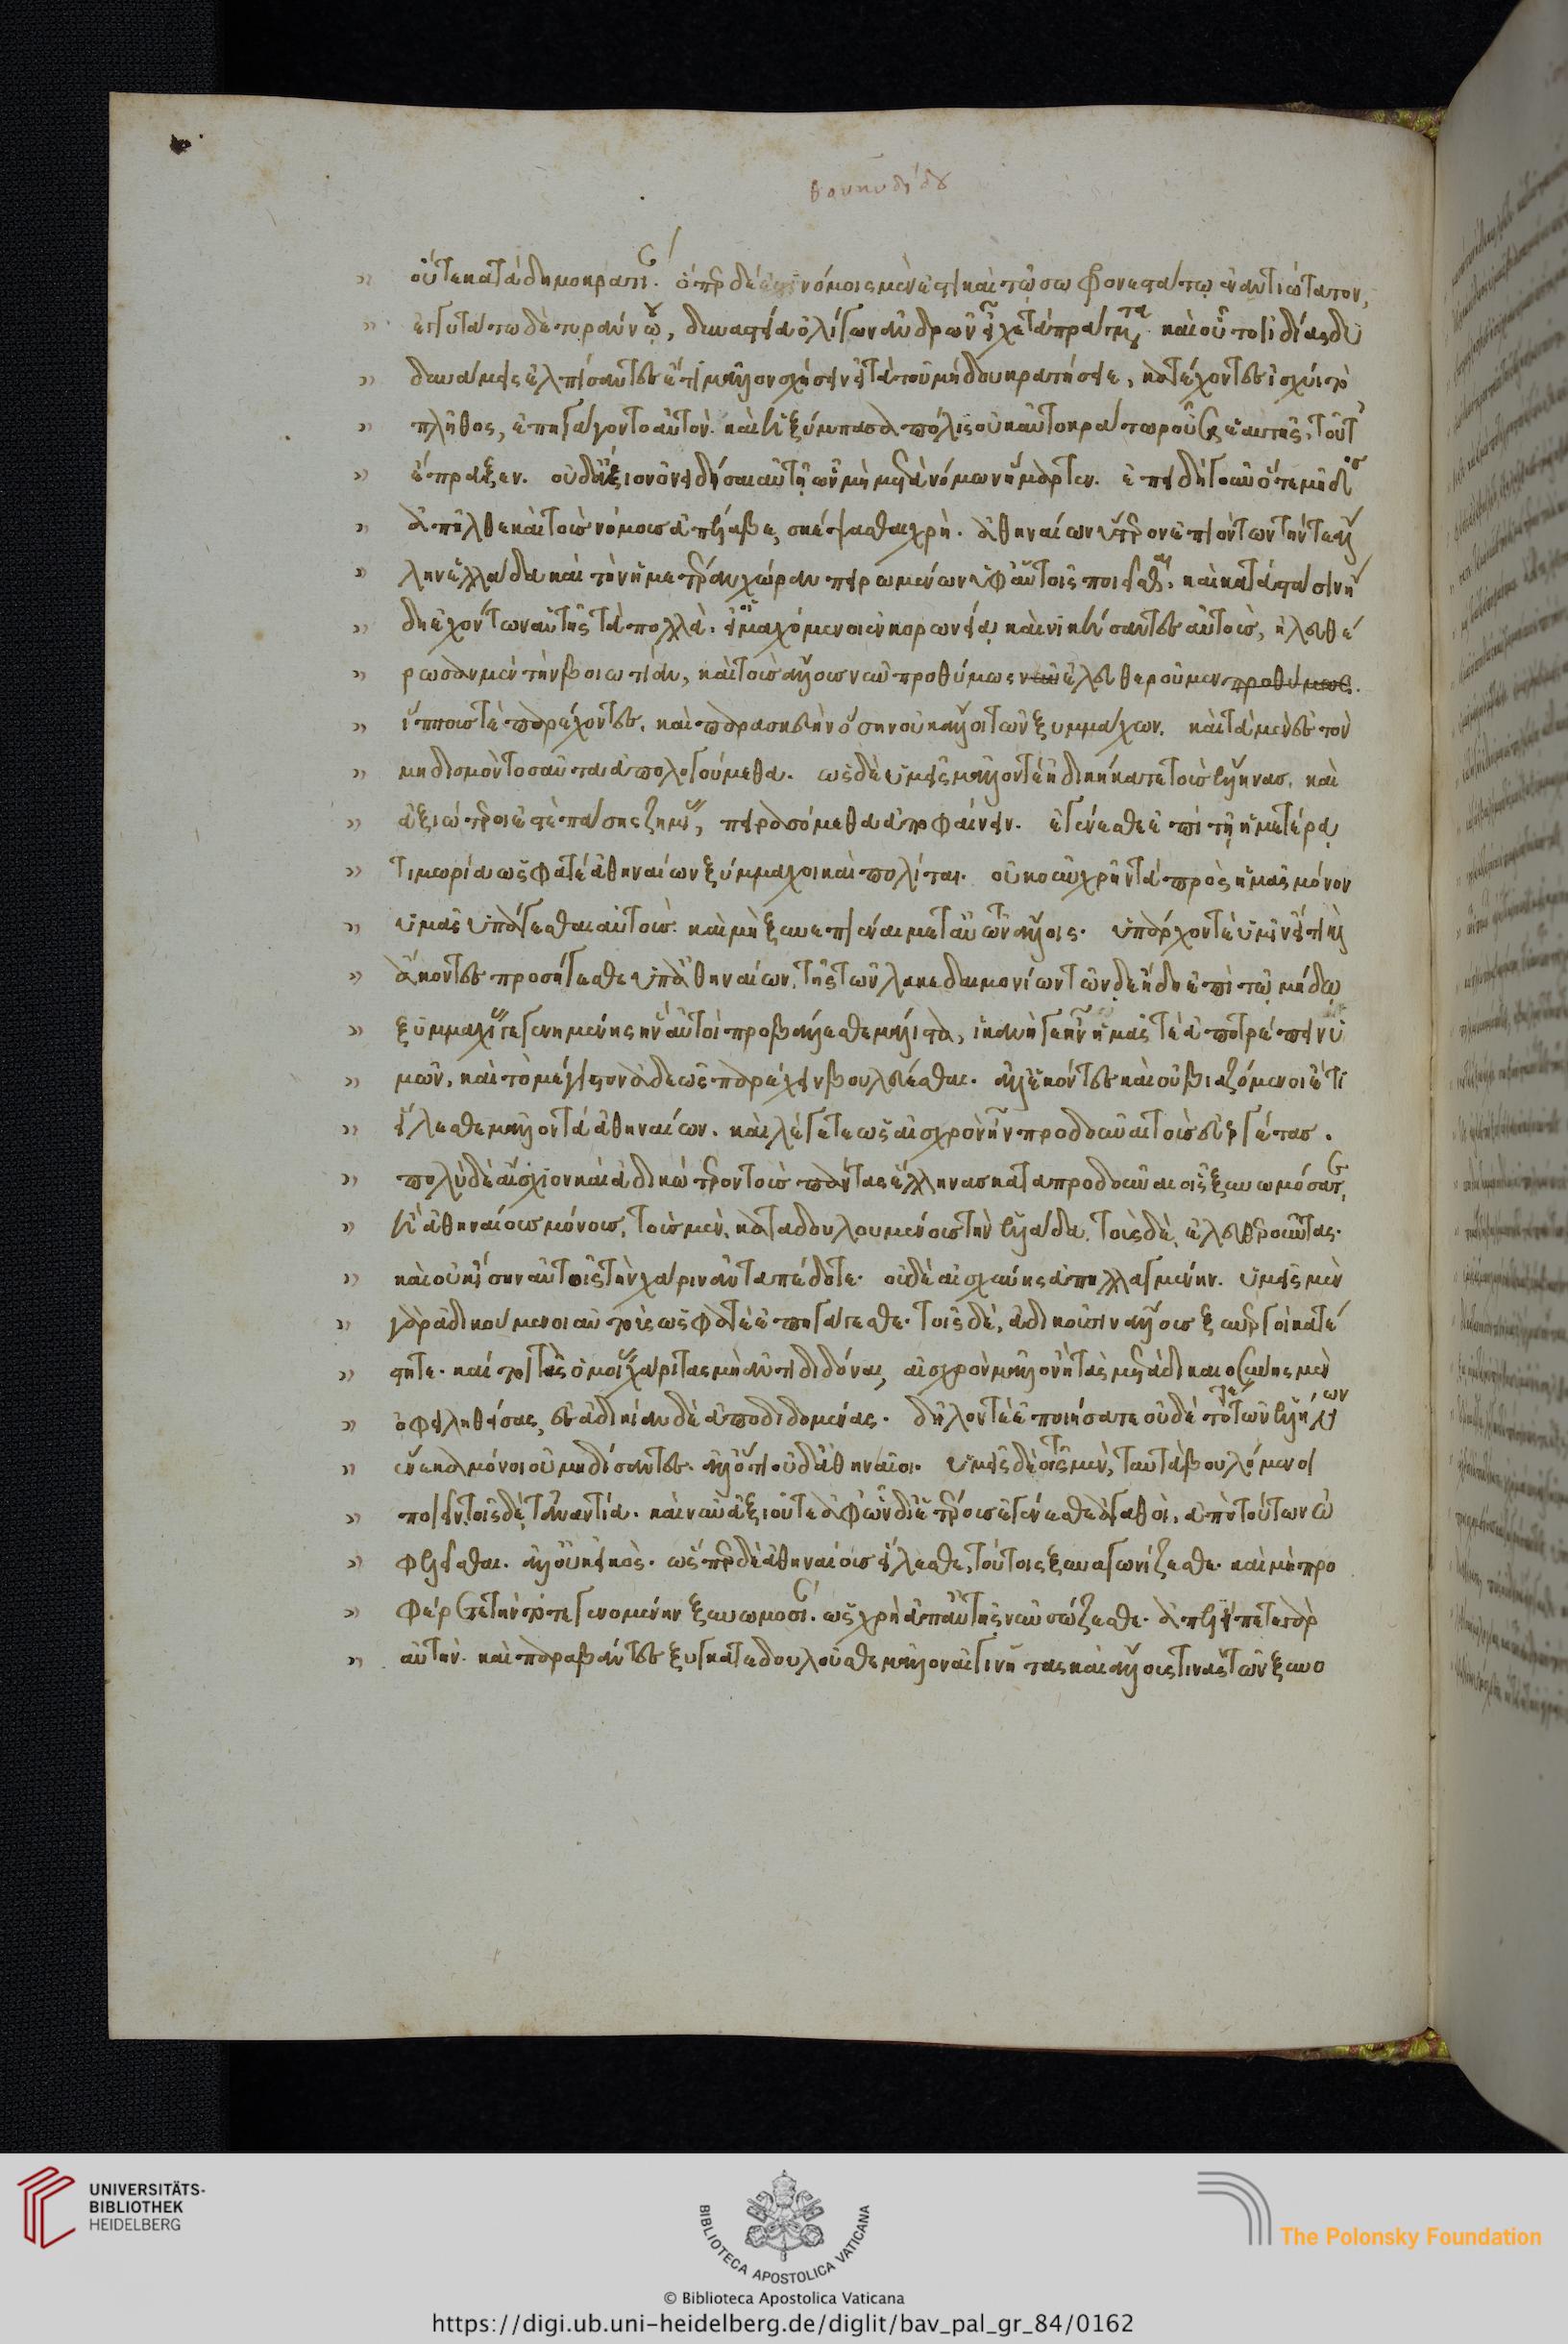 θουκυδίδου
οὔτε κατὰ δημοκρατίαν. ὅπερ δέ ἐστι νόμοις μὲν ἐστὶ καὶ τῷ σωφρονεστάτῳ ἐναντιώτατον,
ἐγγυτάτω δὲ τυράννου, δυναστεία ὀλίγων ἀνδρῶν εἶχε τὰ πράγματα. καὶ οὗτοι ἰδίας δυ
δυναμεις ἐλπίσαντες ἔτι μᾶλλον σχήσειν εἰ τὰ τοῦ μήδου κρατήσειε, κατέχοντες ἰσχύι τὸ
πλῆθος, ἐπηγάγοντο αὐτόν. καὶ ἡ ξύμπασα πόλις οὐκ αὐτοκράτωρ οὖσα ἑαυτῆς, τοῦτ'
ἔπραξεν. οὐδ' ἄξιον ὀνειδίσαι αὐτῇ ὧν μὴ μετὰ νόμων ἥμαρτεν. ἐπειδὴ γοῦν ὅτε μῆδος
ἀπῆλθε καὶ τοὺς νόμους ἀπέλαβε, σκέψασθαι χρή. ἀθηναίων ὕστερον ἐπιόντων τήν τε ἄλ
λην ἑλλάδα καὶ τὴν ἡμετέραν χώραν πειρωμένων ὑφ' αὑτοῖς ποιεῖσθαι, καὶ κατὰ στάσιν ἤ
δη ἐχόντων αὐτῆς τὰ πολλά. εἰ μαχόμενοι ἐν κορωνείᾳ καὶ νικήσαντες αὐτοὺς, ἠλευθε
ρώσαμεν τὴν βοιωτίαν, καὶ τοὺς ἄλλους νῦν προθύμως ξυνελευθεροῦμεν προθύμως.
ἵππους τὲ παρέχοντες. καὶ παρασκευὴν ὅσην οὐκ ἄλλοι τῶν ξυμμάχων. καὶ τὰ μὲν ἐς τὸν
μηδισμὸν τοσαῦτα ἀπολογούμεθα. ὡς δὲ ὑμεῖς μᾶλλόν τὲ ἠδικήκατε τοὺς ἕλληνας, καὶ
ἀξιώτεροι ἐστὲ πάσης ζημίας, πειρασόμεθα ἀποφαίνειν. ἐγένεσθε ἐπὶ τῇ ἡμετέρᾳ
τιμωρίᾳ ὡς φατὲ ἀθηναίων ξύμμαχοι καὶ πολῖται. οὐκοῦν χρῆν τὰ πρὸς ἡμᾶς μόνον
ὑμᾶς ὑπάγεσθαι αὐτοὺς. καὶ μὴ ξυνεπιέναι μετ' αὐτῶν ἄλλοις. ὑπάρχον τὲ ὑμῖν εἴ τι κ
ἄκοντες προσήγεσθε ὑπ' ἀθηναίων, τῆς τῶν λακεδαιμονίων τῶνδε ἤδη ἐπὶ τῷ μήδῳ
ξυμμαχίας γεγενημένης ἣν αὐτοὶ προβάλλεσθε μάλιστα, ἱκανὴ γε ἦν ἡμᾶς τὲ ἀποτρέπειν ὑ
μῶν, καὶ τὸ μέγιστον ἀδεῶς παρέχειν βουλεύεσθαι. ἀλλ' ἑκόντες καὶ οὐ βιαζόμενοι ἔτι
εἵλεσθε μᾶλλον τὰ ἀθηναίων. καὶ λέγετε ὡς αἰσχρὸν ἦν προδοῦναι τοὺς εὐεργέτας.
πολὺ δὲ αἴσχιον καὶ ἀδικώτερον τοὺς πάντας ἕλληνας καταπροδοῦναι οἷς ξυνωμόσατε,
ἢ ἀθηναίους μόνους, τοὺς μὲν, καταδουλουμένους τὴν ἑλλάδα, τοὺς δὲ, ἐλευθεροῦντας.
καὶ οὐκ ἴσην αὐτοῖς τὴν χάριν ἀνταπέδοτε. οὐδὲ αἰσχύνης ἀπηλλαγμένην. ὑμεῖς μὲν
γὰρ ἀδικούμενοι αὐτοὺς ὡς φατὲ ἐπηγάγεσθε. τοῖς δὲ, ἀδικοῦσιν ἄλλους ξυνεργοὶ κατέ
στητε. καί τοι τὰς ὁμοίας χάριτας μὴ ἀντιδιδόναι, αἰσχρὸν μᾶλλον ἢ τὰς μετὰ δικαιοσύνης μὲν
ὀφειληθείσας, ἐς ἀδικίαν δὲ ἀποδιδομένας. δῆλόν τὲ ἐποιήσατε οὐδὲ τότε τῶν ἑλλήνων
ἕνεκα μόνοι οὐ μηδίσαντες. ἀλλ' ὅτι οὐδ' ἀθηναῖοι. ὑμεῖς δὲ τοῖς μὲν, ταυτὰ βουλόμενοι
ποιεῖν, τοῖς δὲ, τἀναντία. καὶ νῦν ἀξιοῦτε ἀφ' ὧν δι' ἑτέρους ἐγένεσθε ἀγαθοὶ, ἀπὸ τούτων ὠ
φελεῖσθαι. ἀλλ' οὐκ εἰκὸς. ὥσπερ δὲ ἀθηναίους εἵλεσθε, τούτοις ξυναγωνίζεσθε. καὶ μὴ προ
φέρετε τὴν τότε γενομένην ξυνωμοσίαν. ὡς χρὴ ἀπ' αὐτῆς νῦν σώζεσθε. ἀπελίπετε γὰρ
αὐτήν. καὶ παραβάντες ξυγκατεδουλοῦσθε μᾶλλον αἰγινήτας καὶ ἄλλους τινὰς τῶν ξυνο
UNIVERSITÄTS-
BIBLIOTHEK
HEIDELBERG
BIBLIOTECA APOSTOLICA VATICANA
The Polonsky Foundation
© Biblioteca Apostolica Vaticana
https://digi.ub.uni-heidelberg.de/diglit/bav_pal_gr_84/0162